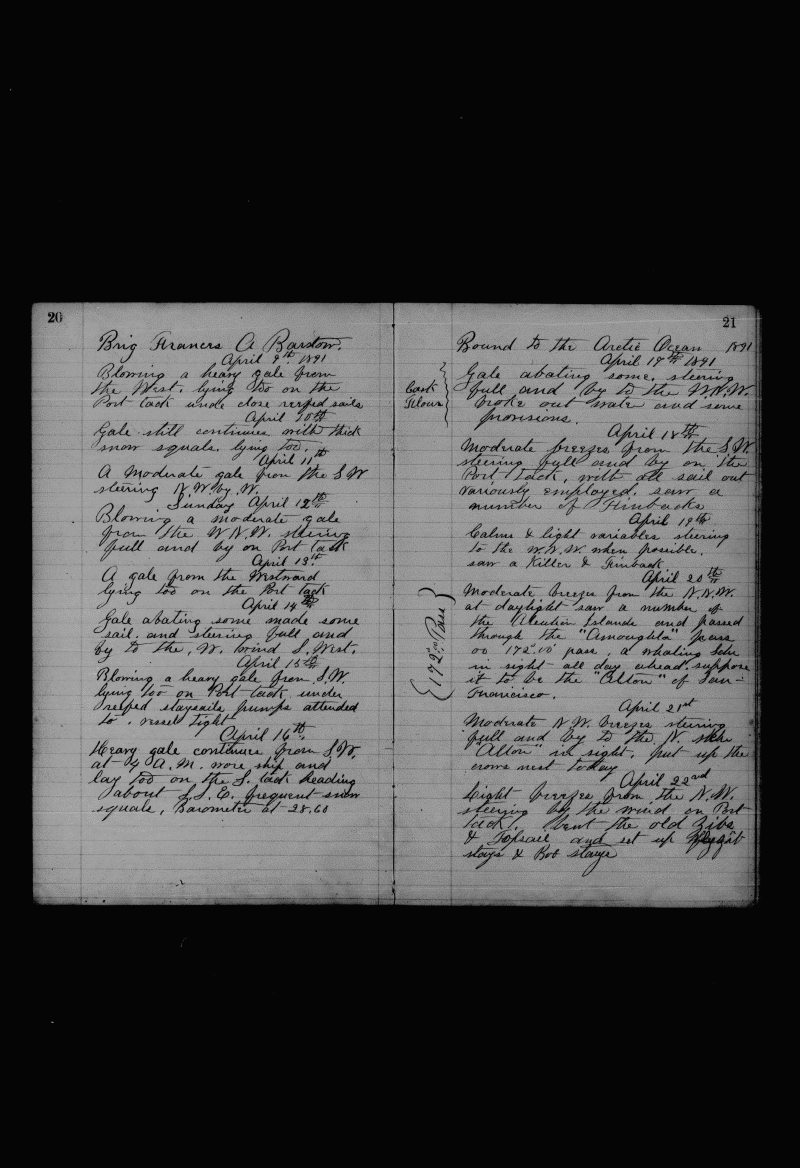 20
Brig Francis A Barstow.
April 9th 1891
Blowing a heavy gale from
the West. lying too on the
Port tack unde close reefed sails
April 10th
Gale still continues with thick
snow squals. lying too.
April 11th
A Moderate gale from the S W
steering N. W. by. W.
Sunday April 12th
Blowing a moderate gale
from the W.N.W. steering
full and by on Port tack
April 13th
A gale from the Westward
lying too on the Port tack
April 14th
Gale abating some made some
sail. and steering full and
by to the, W. wind S. West.
April 15th
Blowing a heavy gale from S.W.
lying too on Port tack under
reefed staysails pumps attended
to. vessel tight
April 16th
Heavy gale continues from S.W.
at 4 A.M. wore ship and
lay too on the S. tack heading
about S.S.E. frequent snow
squals, Barometer at 28.60
21
Bound to the Arctic Ocean 1891
April 17th 1891
Cask
Flour
Gale abating some. steering
full and by to the W.N.W.
broke out water and some
provisions.
April 18th
Moderate breezes from the S.W.
steering full and by on the
Port tack, with all sail out
variously employed. saw a
number of Finbacks
April 19th
Calms & light variables steering
to the W.N.W. when possible.
saw a Killer & Finback
April 20th
(172nd Pass)
Moderate breezes from the N.N.W.
at daylight saw a number of
the Aleutian Islands and passed
through the "Amoughta" pass
oo 172°00' pass. a whaling Schr
in sight all day ahead. suppose
it to be the "Alton" of San-
Francisco.
April 21st
Moderate N.W. breezes steering
full and by to the N. Schr
"Alton" in sight. put up the
crows nest today
April 22nd
Light breezes from the N.W.
steering by the wind on Port
tack. bent the old Jibs
& Topsail and set up
stays & Bob stays